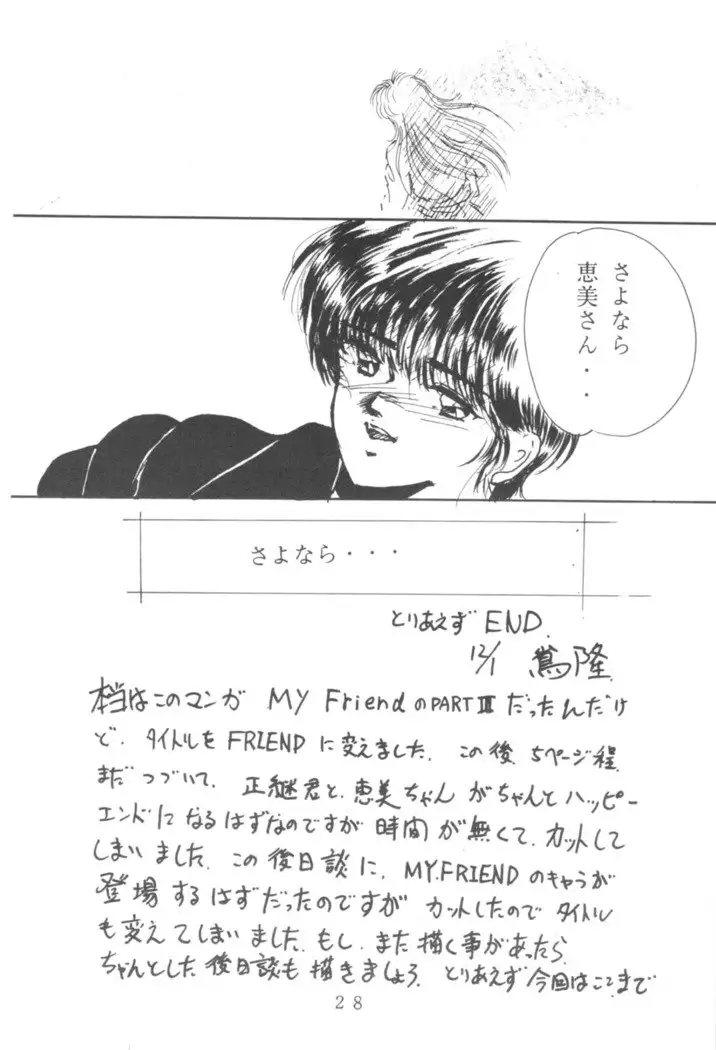 さよなら
恵美さん・・
さよなら・・・
とりあえず END.
12/1 鴬隆
本当はこのマンガ MY FriendのPART Ⅲ だったんだけ
ど、タイトルを FRIEND に変えました。この後 5ページ程、
まだ つづいて、正継君と、恵美ちゃん がちゃんと ハッピー
エンドに なる はずなのですが 時間 が 無くて、カットして
しまい ました。この 後日談 に、MY.FRIEND のキャラが
登場 する はずだったのですが カットしたので タイトル
も 変えて しまい ました。もし、また 描く 事が あったら、
ちゃんとした 後日談も 描きましょう。とりあえず 今回は ここまで
28